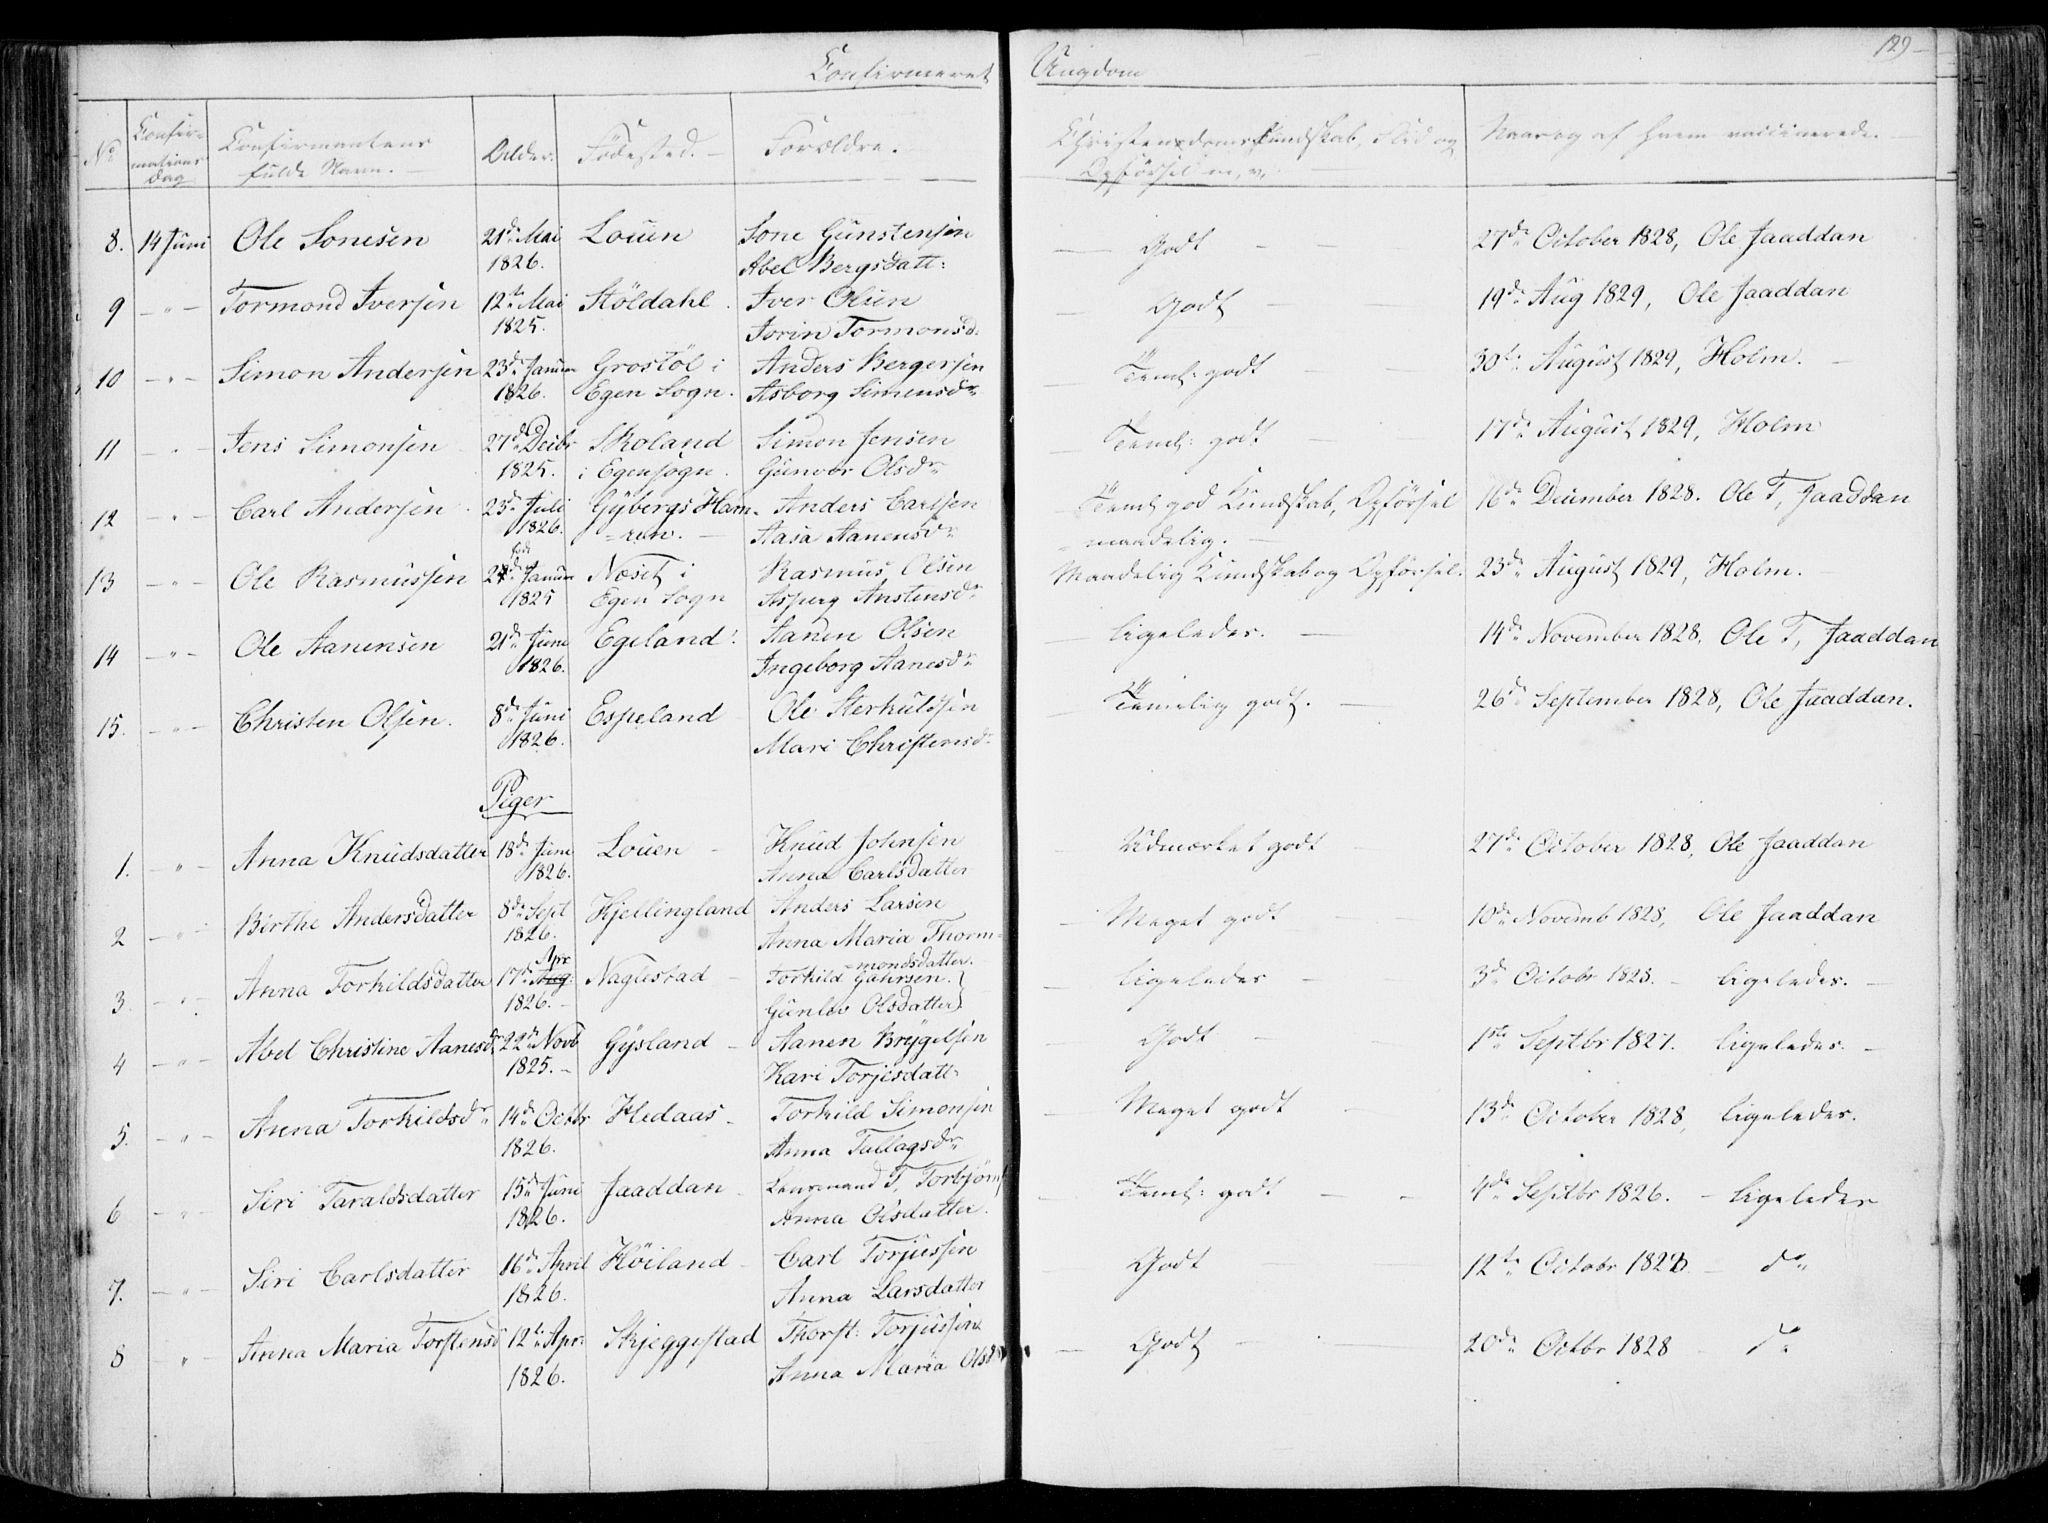 Confirmeret Ungdom 129
No. Confirmations Dag Confirmantens fulde Navn. Alder. Födested. Forældre. Christendoms Kundskab, Flid og Opførsel m, v, Naar og af hvem vaccinerede.
8. 14 Juni Ole Sonesen 21de Mai Louen Sone Gunstensen Godt 27de October 1828, Ole Jaaddan
1826. Abel Bergsdatt:
9 " Tormond Iversen 12te Mai Stöldahl. Iver Olsen Godt 19de Aug 1829, Ole Jaaddan
1825. Jorin Tormonsd:
10 " Simon Andersen 23de Januar Grostöl i Anders Bergersen Teml: godt 30te August 1829, Holm.
1826. Egen Sogn. Asborg Simensdr
11 " Jens Simonsen 27de Decbr Skoland Simon Jensen Teml: godt 17de August 1829, Holm
1825. i Egen sogn. Gunvor Olsdr
12 " Carl Andersen 23de Juli Gÿbergs Ham- Anders Carlsen Teml god Kundskab, Opførsel 16de December 1828. Ole T, Jaaddan
1826. =ren. Aasa Aanensdr maadelig.
13 " Ole Rasmussen Januar Næset i Rasmus Olsen Maadelig Kundskab og Opførsel. 23de August 1829, Holm.
1825 Egen Sogn Asperg Anstensdr
14 " Ole Aanensen 21de Juni Egeland. Aanen Olsen ligeledes. 14de November 1828. Ole T, Jaaddan
1826. Ingeborg Aanesdr
15. " Christen Olsen. 8de Juni Espeland Ole Sterkuldsen Temelig godt. 26de September 1828, Ole Jaaddan.
1826. Mari Christensdr
Piger
1. " Anna Knudsdatter 18de Juni Louen Knud Johnsen Udmærket godt 27de October 1828, Ole Jaaddan
1826. Anna Carlsdatter
2 " Birthe Andersdatter 8de Sept Kjellingland Anders Larsen Meget godt 10de Novemb 1828, Ole Jaaddan
1826. Anna Maria Thorm=
=mondsdatter.
3 " Anna Torkildsdatter 17de Apr Naglestad Torkild Gahrsen. ligeledes 3de Octobr 1828. ligeledes.
1826. Gunlov Olsdatter
4 " Abel Christine Aanesd 22de Novb Gÿsland Aanen Brÿgelsen Godt 1ste Septbr 1827. ligeledes.
1825. Kari Torjesdatt:
5. " Anna Torkildsdr 14de Octbr Hedaas Torkild Simonsen Meget godt 13de October 1828, ligeledes.
1826. Anna Tallagsdr
6 " Siri Taraldsdatter 15de Juni Jaaddan Lensmand T, Torbjörns Teml: godt 4de Septbr 1826. ligeledes
1826. Anna Olsdatter.
7. " Siri Carlsdatter 16de April Höiland Carl Torjussen Godt 12te Octobr do
1826. Anna Larsdatter
8 " Anna Maria Torstensd 12te Apr: Skjeggestad Thorst: Torjussen Godt 20de Octbr 1828 do
1826. Anna Maria Olsd